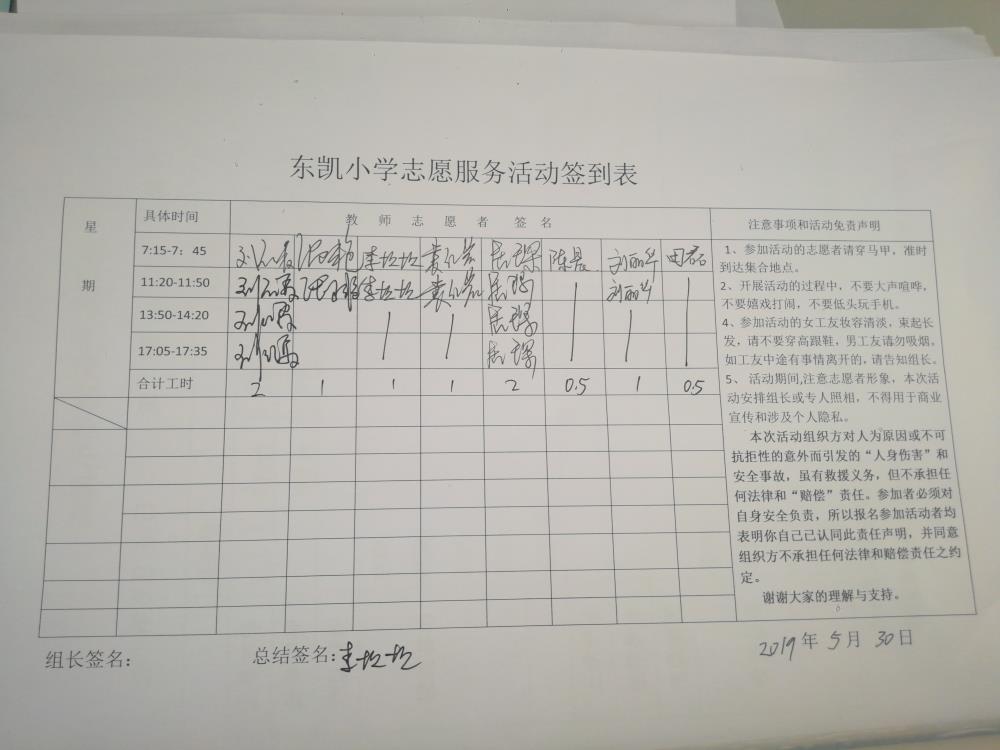 东凯小学志愿服务活动签到表
星期
具体时间
教师志愿者签名
注意事项和活动免责声明
7:15-7：45 李垃垃 陈晨 刘丽华 田磊
11:20-11:50 李垃垃 刘丽华
13:50-14:20
17:05-17:35
合计工时 2 1 1 1 2 0.5 1 0.5
1、参加活动的志愿者请穿马甲，准时
到达集合地点。
2、开展活动的过程中，不要大声喧哗，
不要嬉戏打闹，不要低头玩手机。
4、参加活动的女工友妆容清淡，束起长
发，请不要穿高跟鞋，男工友请勿吸烟。
如工友中途有事情离开的，请告知组长。
5、 活动期间,注意志愿者形象，本次活
动安排组长或专人照相，不得用于商业
宣传和涉及个人隐私。
本次活动组织方对人为原因或不可
抗拒性的意外而引发的“人身伤害”和
安全事故，虽有救援义务，但不承担任
何法律和“赔偿”责任。参加者必须对
自身安全负责，所以报名参加活动者均
表明你自己已认同此责任声明，并同意
组织方不承担任何法律和赔偿责任之约
定。
谢谢大家的理解与支持。
组长签名：
总结签名:李垃垃
2019年5月30日